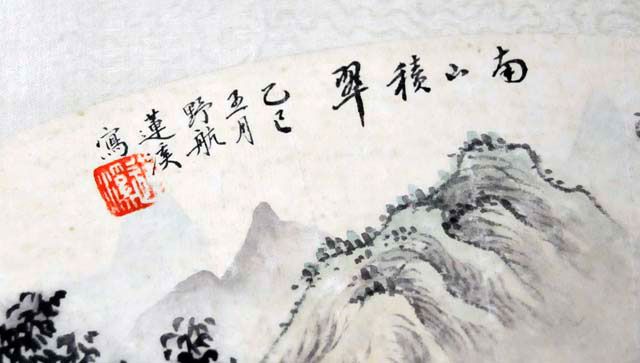 南山積翠
乙巳
五月
野航
蓮溪
寫